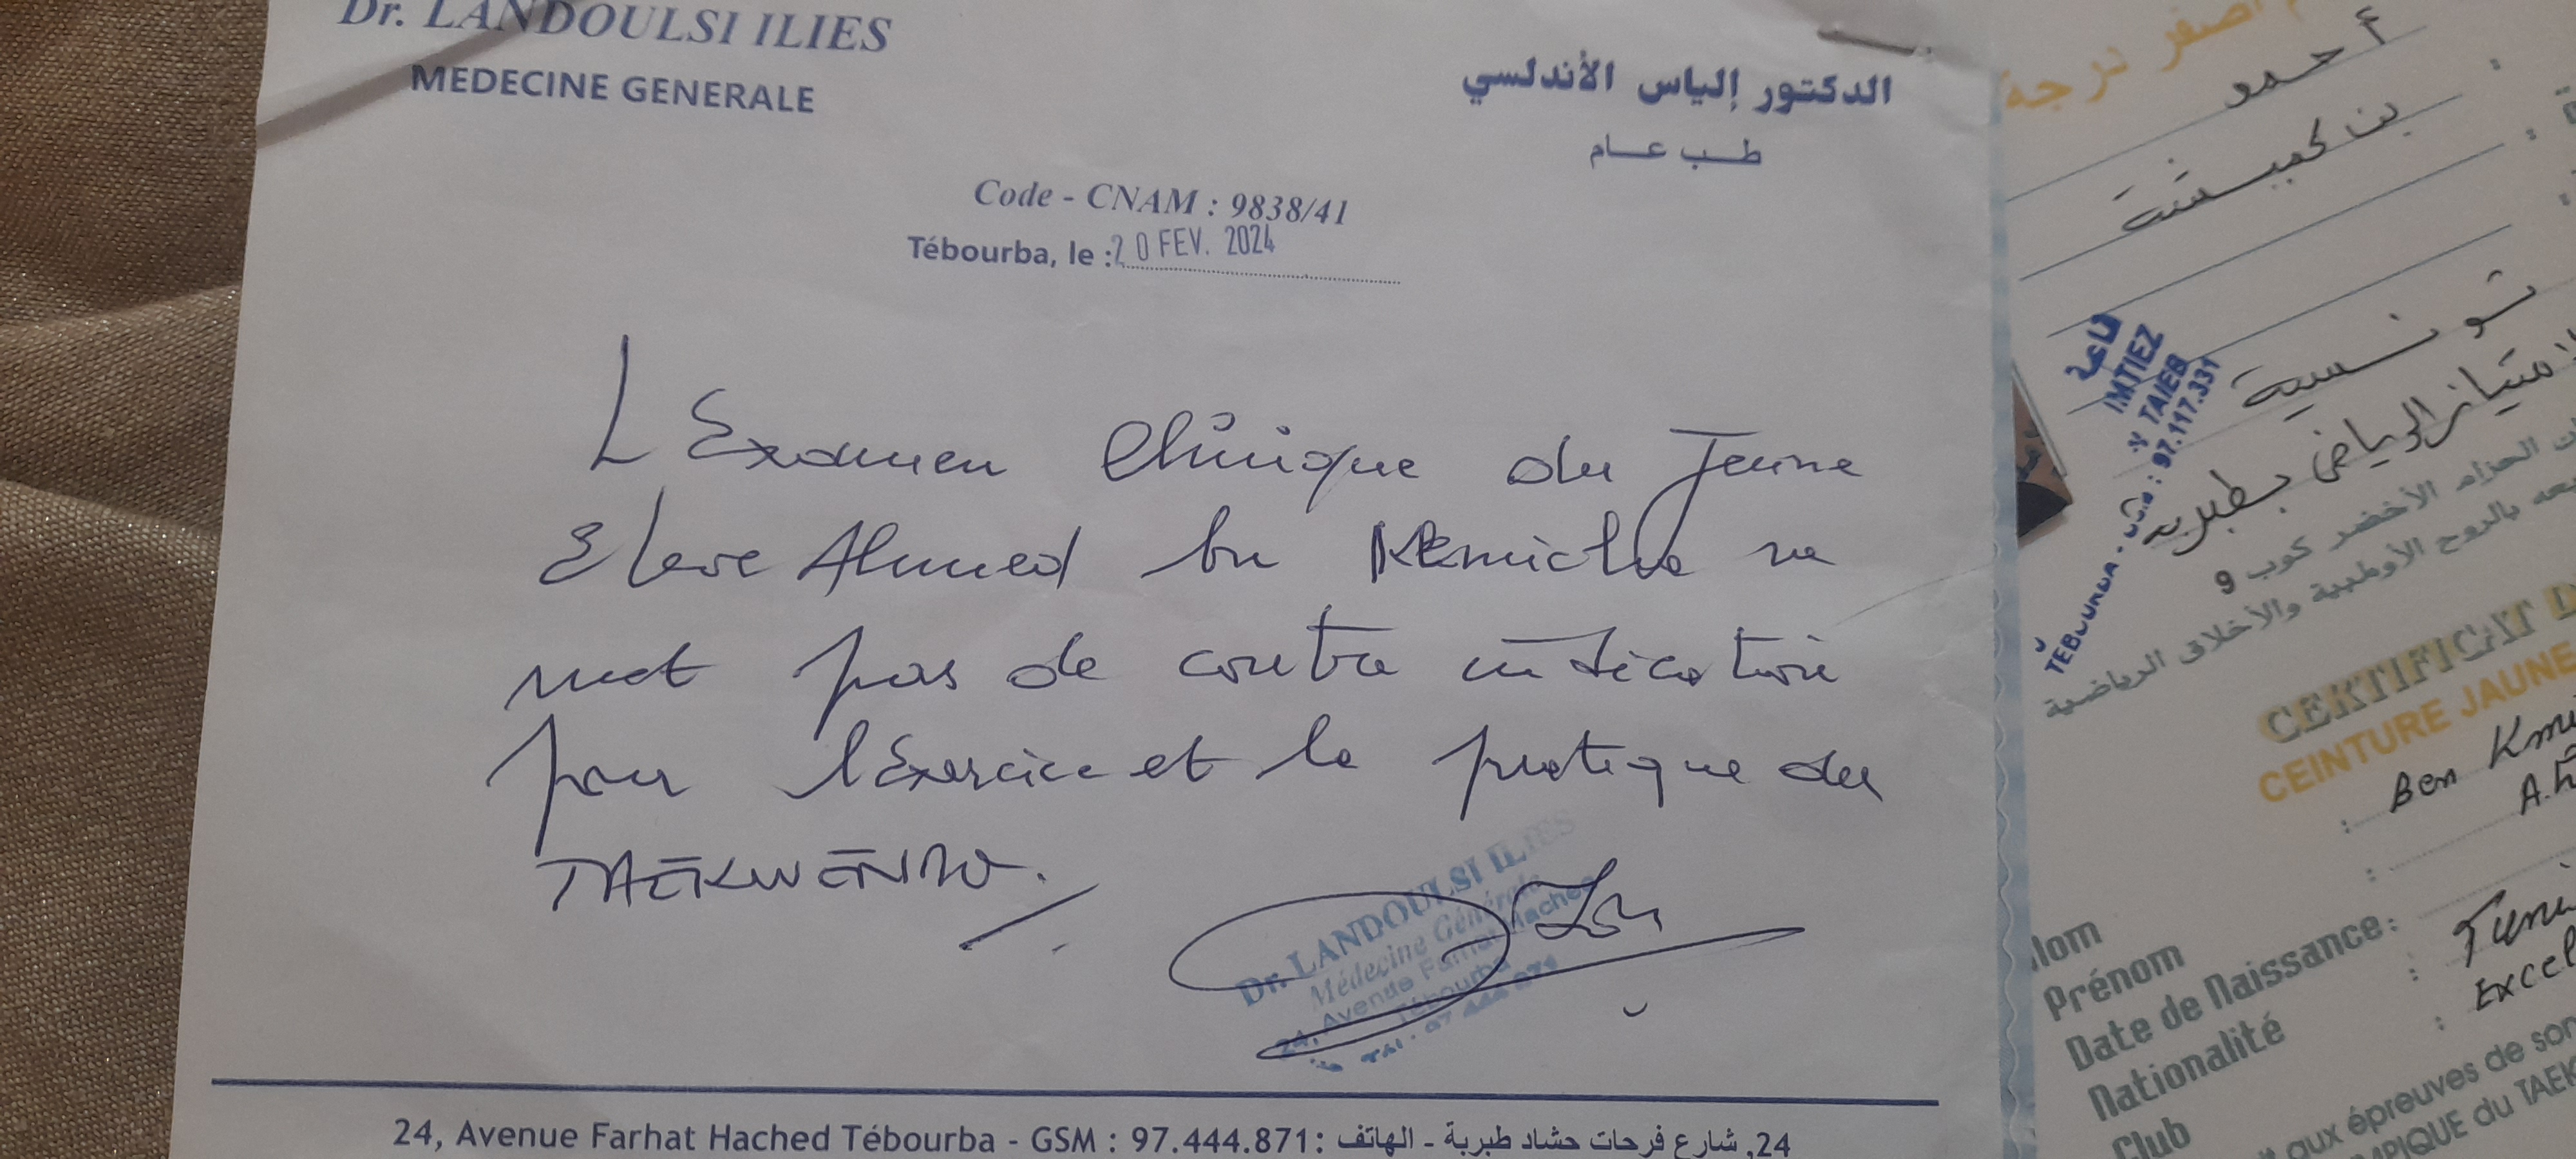 Dr. LANDOULSI ILIES
MEDECINE GENERALE
الدكتور إلياس الأندلسي
طب عام
Code - CNAM : 9838/41
Tébourba, le : 20 FEV. 2024
L'Examen Clinique du Jeune
Eleve Ahmed ben Kemicha ne
met pas de contre indication
pour l'Exercice et la pratique du
TAEKWENDO.
Dr. LANDOULSI ILIES
Médecine Générale
24, Avenue Farhat Hached
Tébourba
24, Avenue Farhat Hached Tébourba - GSM : 97.444.871 : 24, شارع فرحات حشاد طبربة - الهاتف
أصفر درجة
أحمد
بن كميشة
تونسية
الامتياز الرياضي بطبربة
IMTIEZ
TAIEB
97.117.331
TEBOURBA
الحزام الأخضر كوب 9
بالروح الأولمبية والأخلاق الرياضية
CERTIFICAT
CEINTURE JAUNE
: Ben
Nom
Prénom :
Date de Naissance :
Nationalité :
Club :
aux épreuves de son
du TAEK